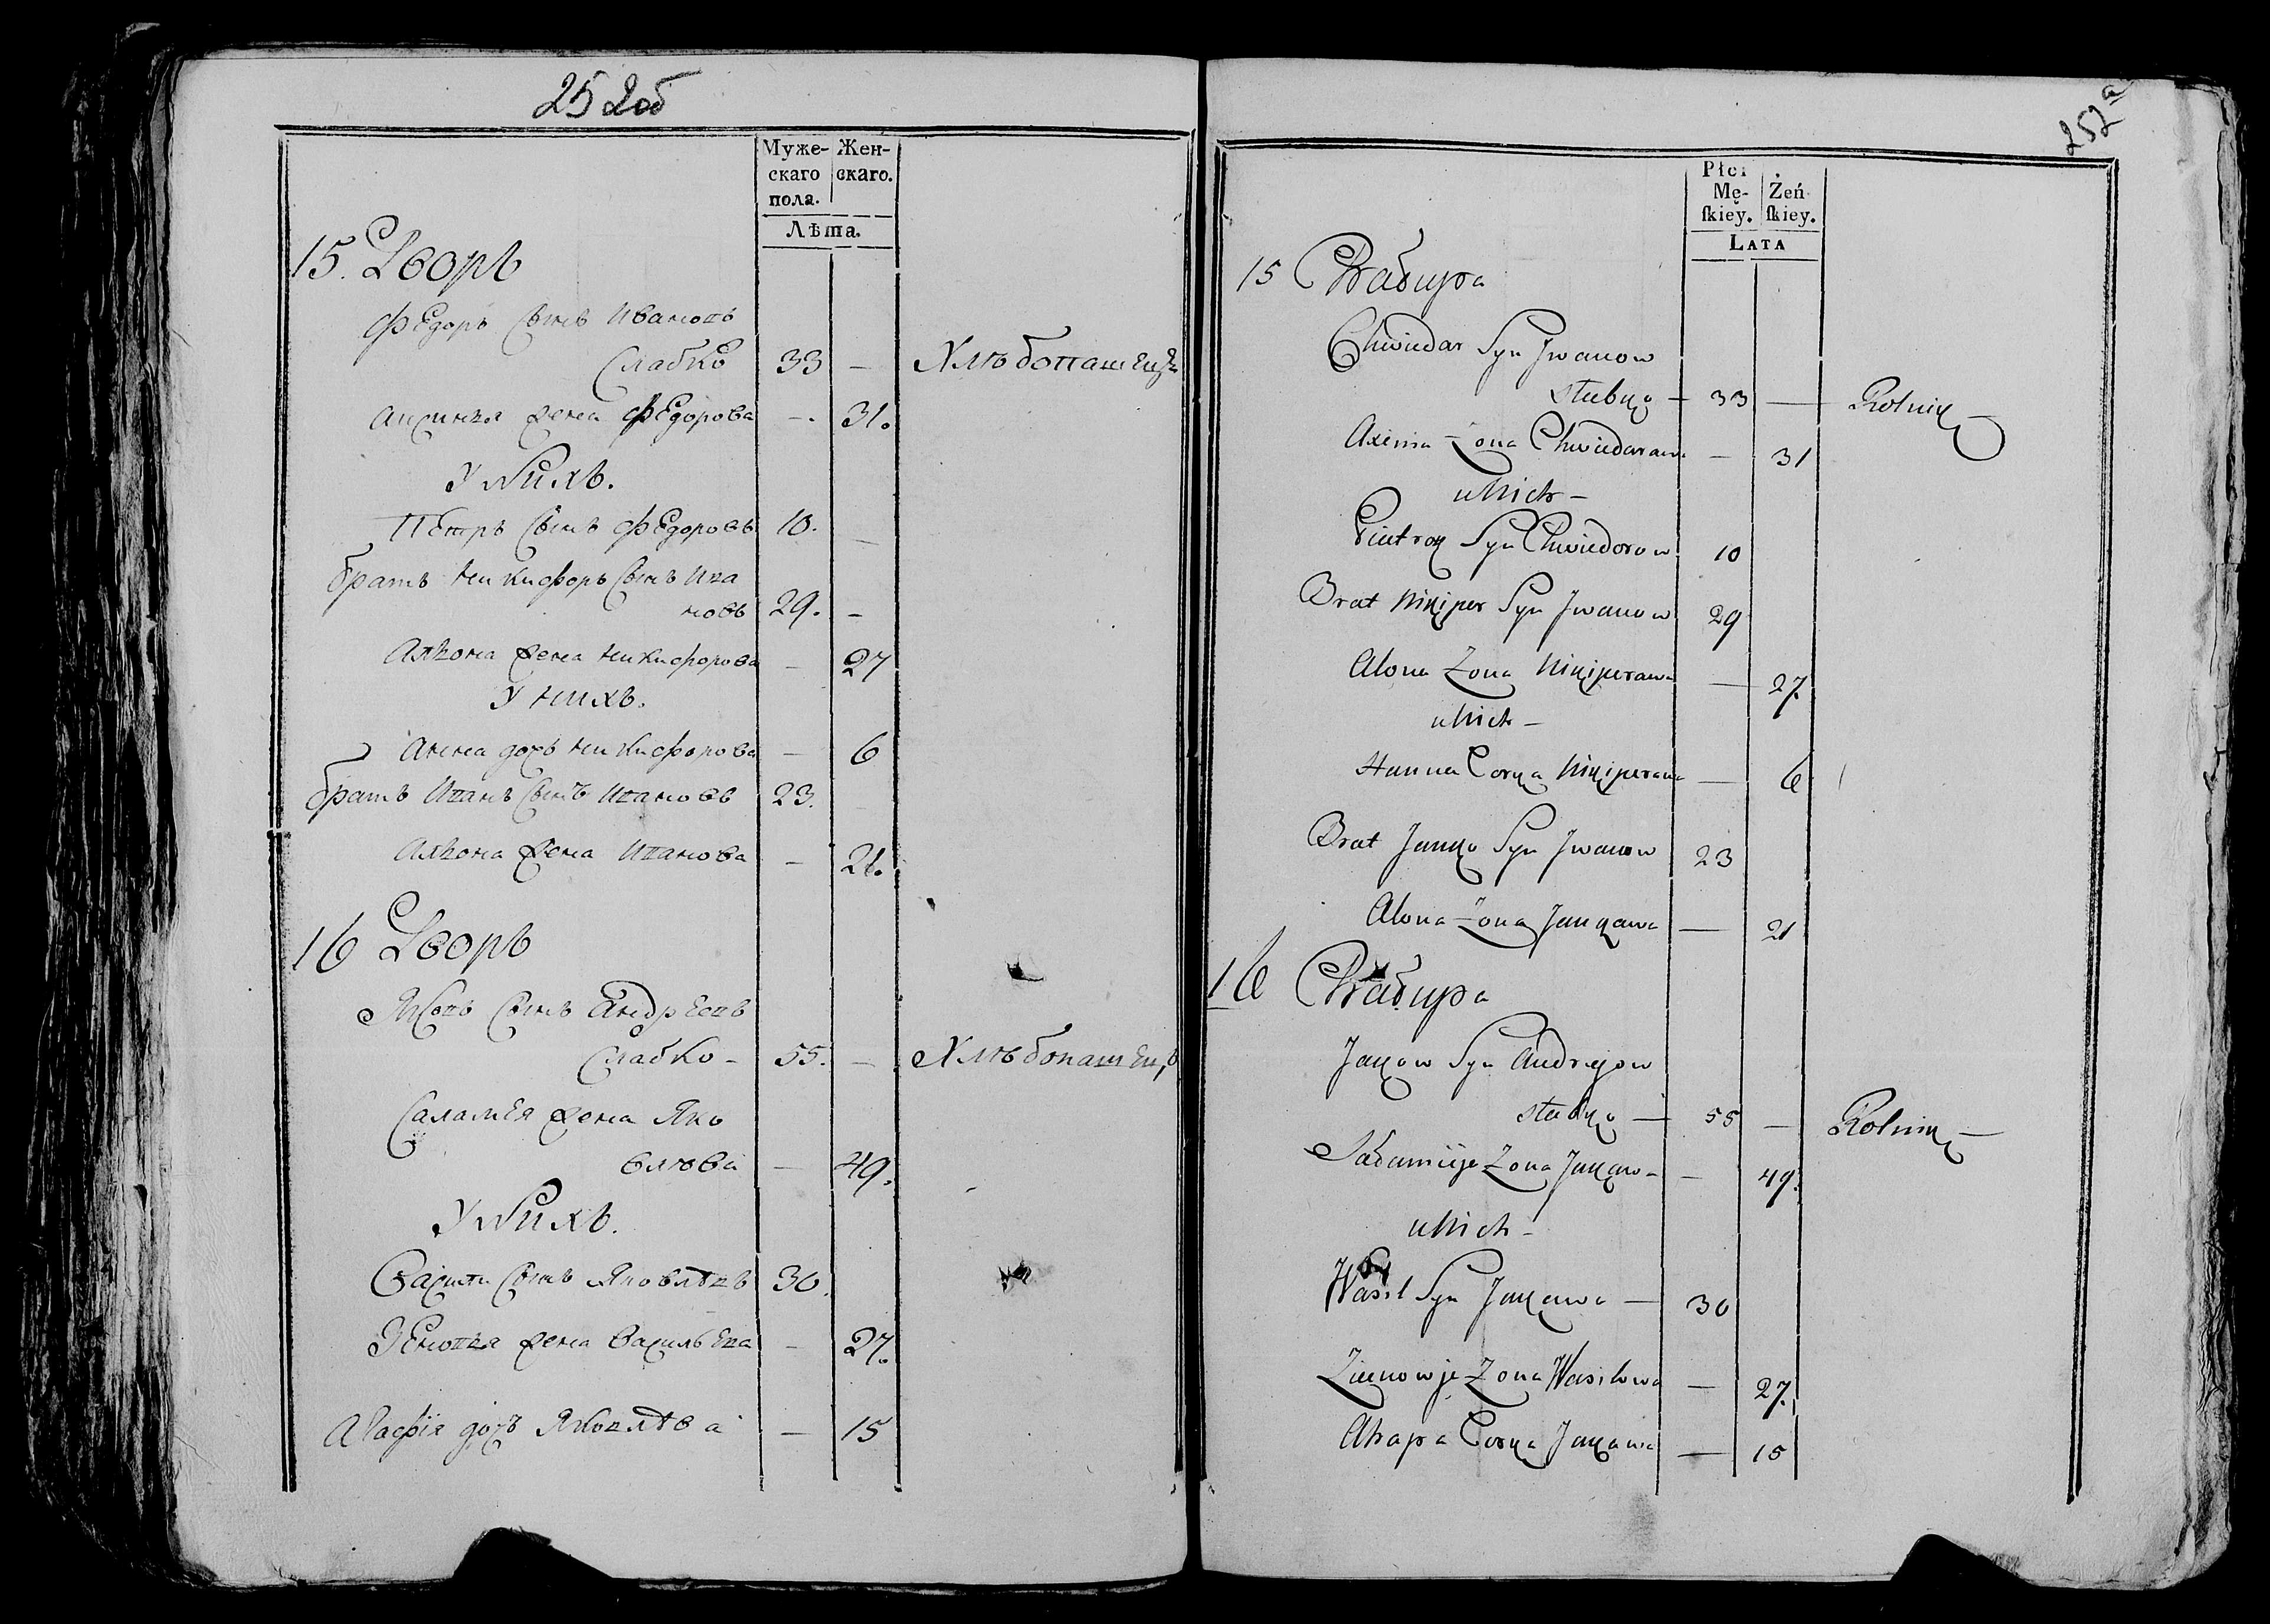 252об
Муже-
скаго
пола.
Жен-
скаго.
Лѣта.
15. Дворъ
Федоръ сынъ Ивановъ
Слабко 33 — Хлѣбопашецъ
Аксинья жена Федорова —. 31.
У нихъ.
Петръ сынъ Федоровъ 10. —
братъ Никифоръ сынъ Ива
новъ 29. —
Алѣона жена Никифорова — 27
У нихъ.
Анна дочь Никифорова — 6
братъ Иванъ сынъ Ивановъ 23.
Алѣона жена Иванова — 21.
16 Дворъ
Яковъ сынъ Андреевъ
Слабко - 55. — Хлѣбопашецъ
Саламея жена Яко
влева — 49.
У нихъ.
Василий сынъ Яковлевъ 30.
Зеновья жена Васильева — 27.
Агафія дочь Яковлѣва — 15
252а
Płci
Mę-
ſkiey.
Żeń
ſkiey.
LATA
15 Chałupa
Chwiedar Syn Jwanow
Słabko — 33 — Rolnik —
Axinia Żona Chwiedarawa — 31
u Nich —
Pietrok Syn Chwiedorow 10
Brat Nikiper Syn Jwanow 29
Alona Żona Nikiperawa — 27.
u Nich —
Hanna Corka Nikiperawa — 6
Brat Janko Syn Jwanow 23
Alona Żona Jankawa — 21
16 Chałupa
Jakow Syn Andrejow
Słabko — 55 — Rolnik —
Sałamieja Żona Jakawa — 49.
u Nich —
Wasil Syn Jakawa — 30
Zienowja Żona Wasilowa — 27.
Ahapa Corka Jakawa — 15